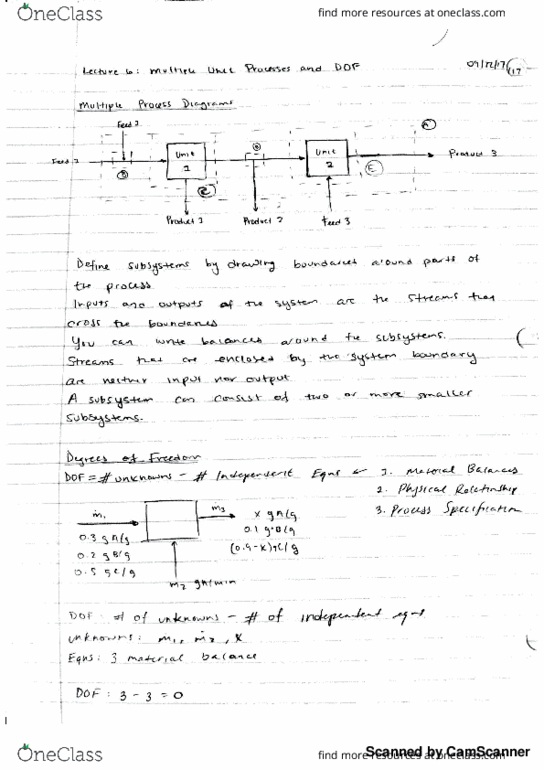 OneClass
find more resources at oneclass.com
Lecture 6: Multiple Unit Processes and DOF
Multiple Process Diagrams
Feed 2
A
Feed 1
Unit 1
Unit 2
Product 3
B
C
D
E
Product 1
Product 2
Feed 3
Define subsystems by drawing boundaries around parts of
the process
Inputs and outputs of the system are the streams that
cross the boundaries
You can write balances around the subsystems.
Streams that are enclosed by the system boundary
are neither input nor output
A subsystem can consist of two or more smaller
subsystems.
Degrees of Freedom
DOF = # unknowns - # Independent Eqns
1. Material Balances
2. Physical Relationship
3. Process Specification
ṁ₁
ṁ3
x gA/g
0.3 gA/g
0.1 gB/g
0.2 gB/g
(0.9-x)gC/g
0.5 gC/g
m2 gA/min
DOF: # of unknowns - # of independent eqns
unknowns: m₁, x
Eqns: 3 material balance
DOF: 3 - 3 = 0
OneClass
find more resources at oneclass.com
Scanned by CamScanner